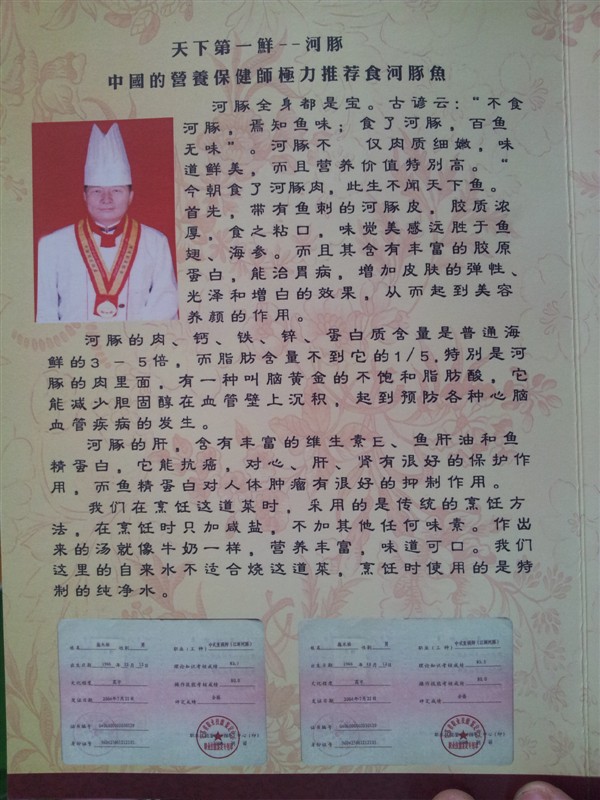 天下第一鮮--河豚
中國的營養保健師極力推荐食河豚魚
河豚全身都是宝。古谚云:"不食
河豚，焉知鱼味；食了河豚，百鱼
无味"。河豚不 仅肉质细嫩，味
道鲜美，而且营养价值特别高。"
今朝食了河豚肉，此生不闻天下鱼。
首先，带有鱼刺的河豚皮，胶质浓
厚，食之粘口，味觉美感远胜于鱼
翅、海参。而且其含有丰富的胶原
蛋白，能治胃病，增加皮肤的弹性、
光泽和增白的效果，从而起到美容
养颜的作用。
河豚的肉、钙、铁、锌、蛋白质含量是普通海
鲜的3-5倍，而脂肪含量不到它的1/5，特别是河
豚的肉里面，有一种叫脑黄金的不饱和脂肪酸，它
能减少胆固醇在血管壁上沉积，起到预防各种心脑
血管疾病的发生。
河豚的肝，含有丰富的维生素E、鱼肝油和鱼
精蛋白，它能抗癌，对心、肝、肾有很好的保护作
用，而鱼精蛋白对人体肿瘤有很好的抑制作用。
我们在烹饪这道菜时，采用的是传统的烹饪方
法，在烹饪时只加咸盐，不加其他任何味素。作出
来的汤就像牛奶一样，营养丰富，味道可口。我们
这里的自来水不适合烧这道菜，烹饪时使用的是特
制的纯净水。